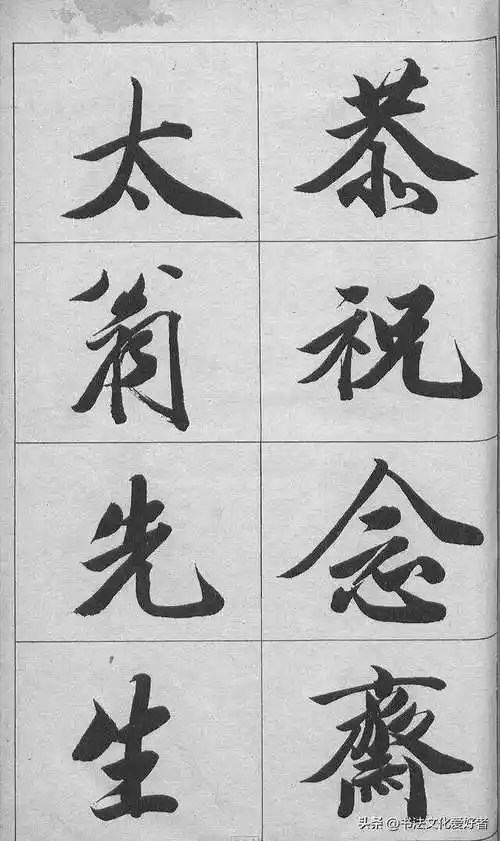 恭祝念齋
太翁先生
头条 @书法文化爱好者